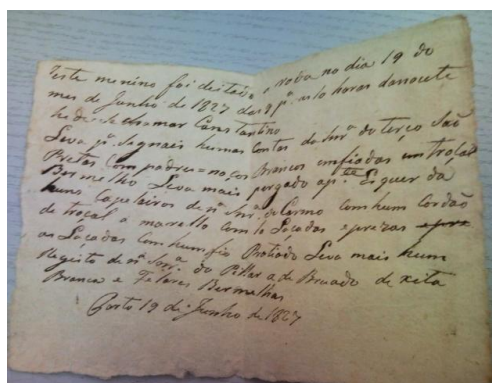 este menino foi deitado, roda no dia 19 do
mes de Junho de 1827 das 9 pª as 10 horas da noute
hade se chamar Constantino
Leva pª Signais humas Contas da Snrª do terço São
Pretas Com padres=nosços Brancos emfiadas em troçal
Bermelho Leva mais pergado a pªᵗᵉ Esquerda
huns Capeleiros de nª Snrª do Carmo com hum Cordão
de troçal amarello com 10 Laçadas e prezas
as Laçadas Com hum fio Pratiado Leva mais hum
Registo de nª Snrª do Pillar de Bruado de xita
Branca e Fetares Bermelhas
Porto 19 de Junho de 1827